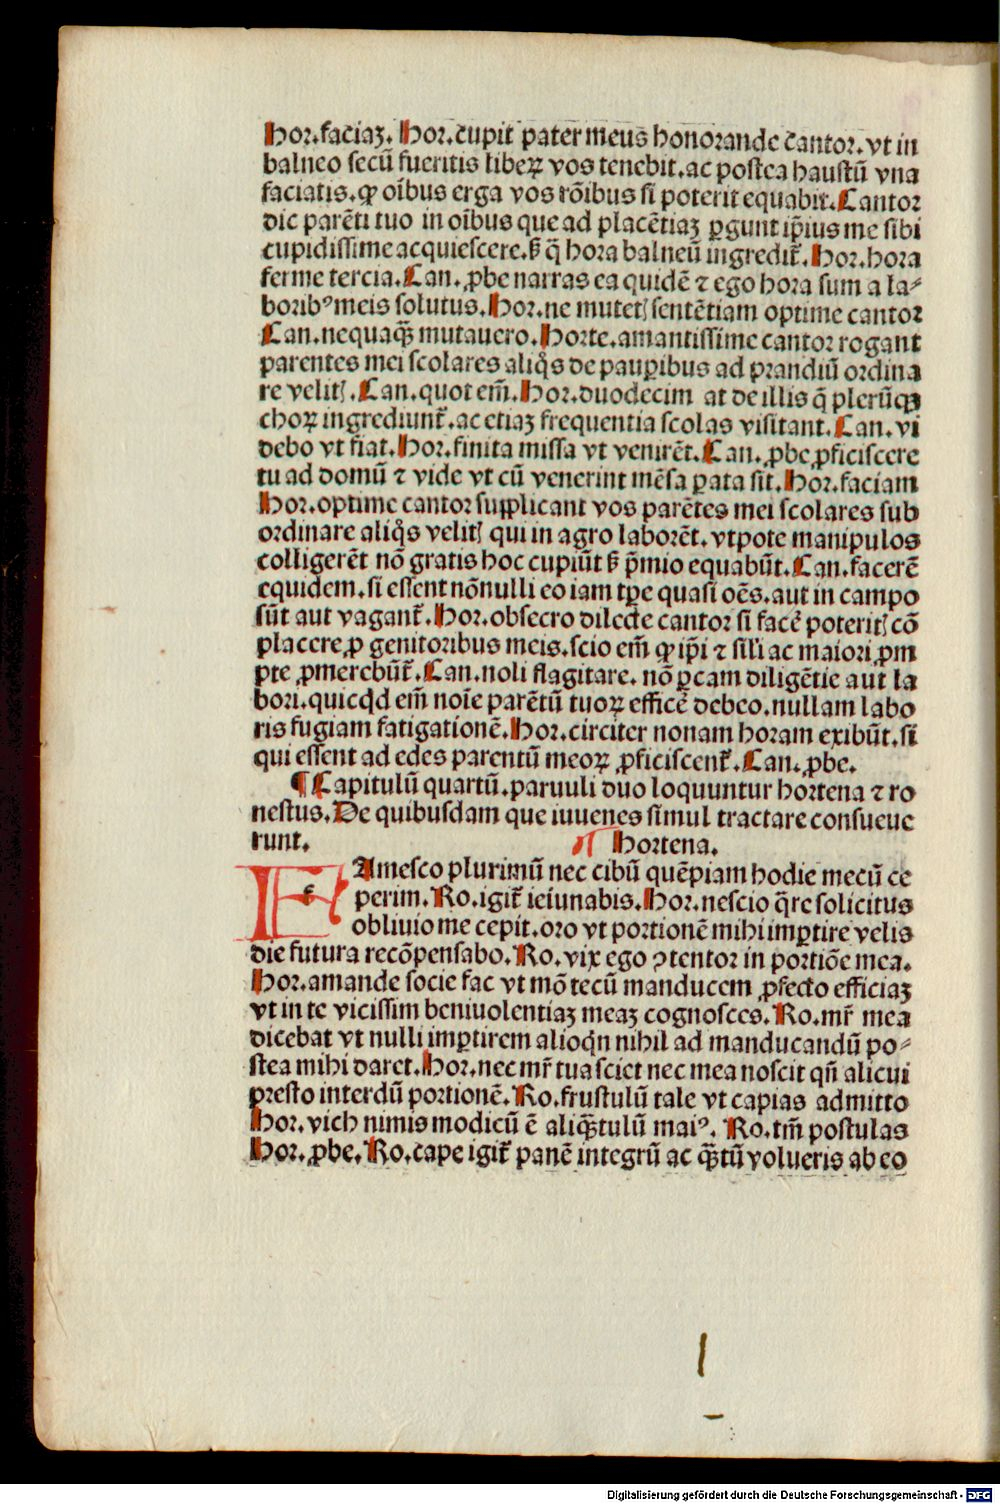 Hor.faciaꝫ. Hor.cupit pater meus honorande cantor.vt in
balneo secū fueritis libeꝝ vos tenebit.ac postea haustū vna
faciatis.ꝙ oībus erga vos rōibus si poterit equabit.Cantor
dic parēti tuo in oībus que ad placētiaꝫ ꝑgunt ip̄ius me sibi
cupidissime acquiescere.ꝭ q̄ hora balneū ingredit᷑.Hor.hora
ferme tercia.Can.ꝓbe narras ea quidē ⁊ ego hora sum a la⸗
boribꝰ meis solutus.Hor.ne mutetꝭ sentētiam optime cantor
Can.nequaq̄ꝫ mutauero.Horte.amantissime cantor rogant
parentes mei scolares aliqͦs de pauꝑibus ad prandiū ordina
re velitꝭ.Can.quot em̄.Hor.duodecim at de illis q̄ plerūqꝫ
choꝝ ingrediunt᷑.ac etiaꝫ frequentia scolas visitant.Can.vi
debo vt fiat.Hor.finita missa vt venirēt.Can.ꝓbe ꝓficiscere
tu ad domū ⁊ vide vt cū venerint mēsa ꝑata sit.Hor.faciam
Hor.optime cantor supplicant vos parētes mei scolares sub
ordinare aliqͦs velitꝭ qui in agro laborēt.vtpote manipulos
colligerēt nō gratis hoc cupiūt ꝭ p̄mio equabūt.Can.facerē
equidem.si essent nōnulli eo iam tꝑe quasi oēs.aut in campo
sūt aut vagant᷑.Hor.obsecro dilecte cantor si facē poteritꝭ cō
placere ꝓ genitoribus meis.scio em̄ ꝙ ip̄i ⁊ sili ac maiori ꝓm
pte ꝓmerebūt᷑.Can.noli flagitare.nō ꝑcam diligētie aut la
bori.quicqd em̄ noīe parētū tuoꝝ efficē debeo.nullam labo
ris fugiam fatigationē.Hor.circiter nonam horam exibūt.si
qui essent ad edes parentū meoꝝ ꝓficiscent᷑.Can.ꝓbe.
¶ Capitulū quartū.paruuli duo loquuntur hortena ⁊ ro
nestus.De quibusdam que iuuenes simul tractare consueue
runt. ¶ Hortena.
FAmesco plurimū nec cibū quēpiam hodie mecū ce
perim.Ro.igit᷑ ieiunabis.Hor.nescio q̄re solicitus
obliuio me cepit.oro vt portionē mihi imꝑtire velis
die futura recōpensabo.Ro.vix ego ꝯtentor in portiōe mea.
Hor.amande socie fac vt mō tecū manducem ꝓfecto efficiaꝫ
vt in te vicissim beniuolentiaꝫ meaꝫ cognosces.Ro.mr̄ mea
dicebat vt nulli imꝑtirem alioqn nihil ad manducandū po⸗
stea mihi daret.Hor.nec mr̄ tua sciet nec mea noscit qn̄ alicui
presto interdū portionē.Ro.frustulū tale vt capias admitto
Hor.vich nimis modicū ē aliq̄ꝫtulū maiꝰ. Ro.tm̄ postulas
Hor.ꝓbe.Ro.cape igit᷑ panē integrū ac q̄ꝫtū volueris ab eo
Digitalisierung gefördert durch die Deutsche Forschungsgemeinschaft - DFG